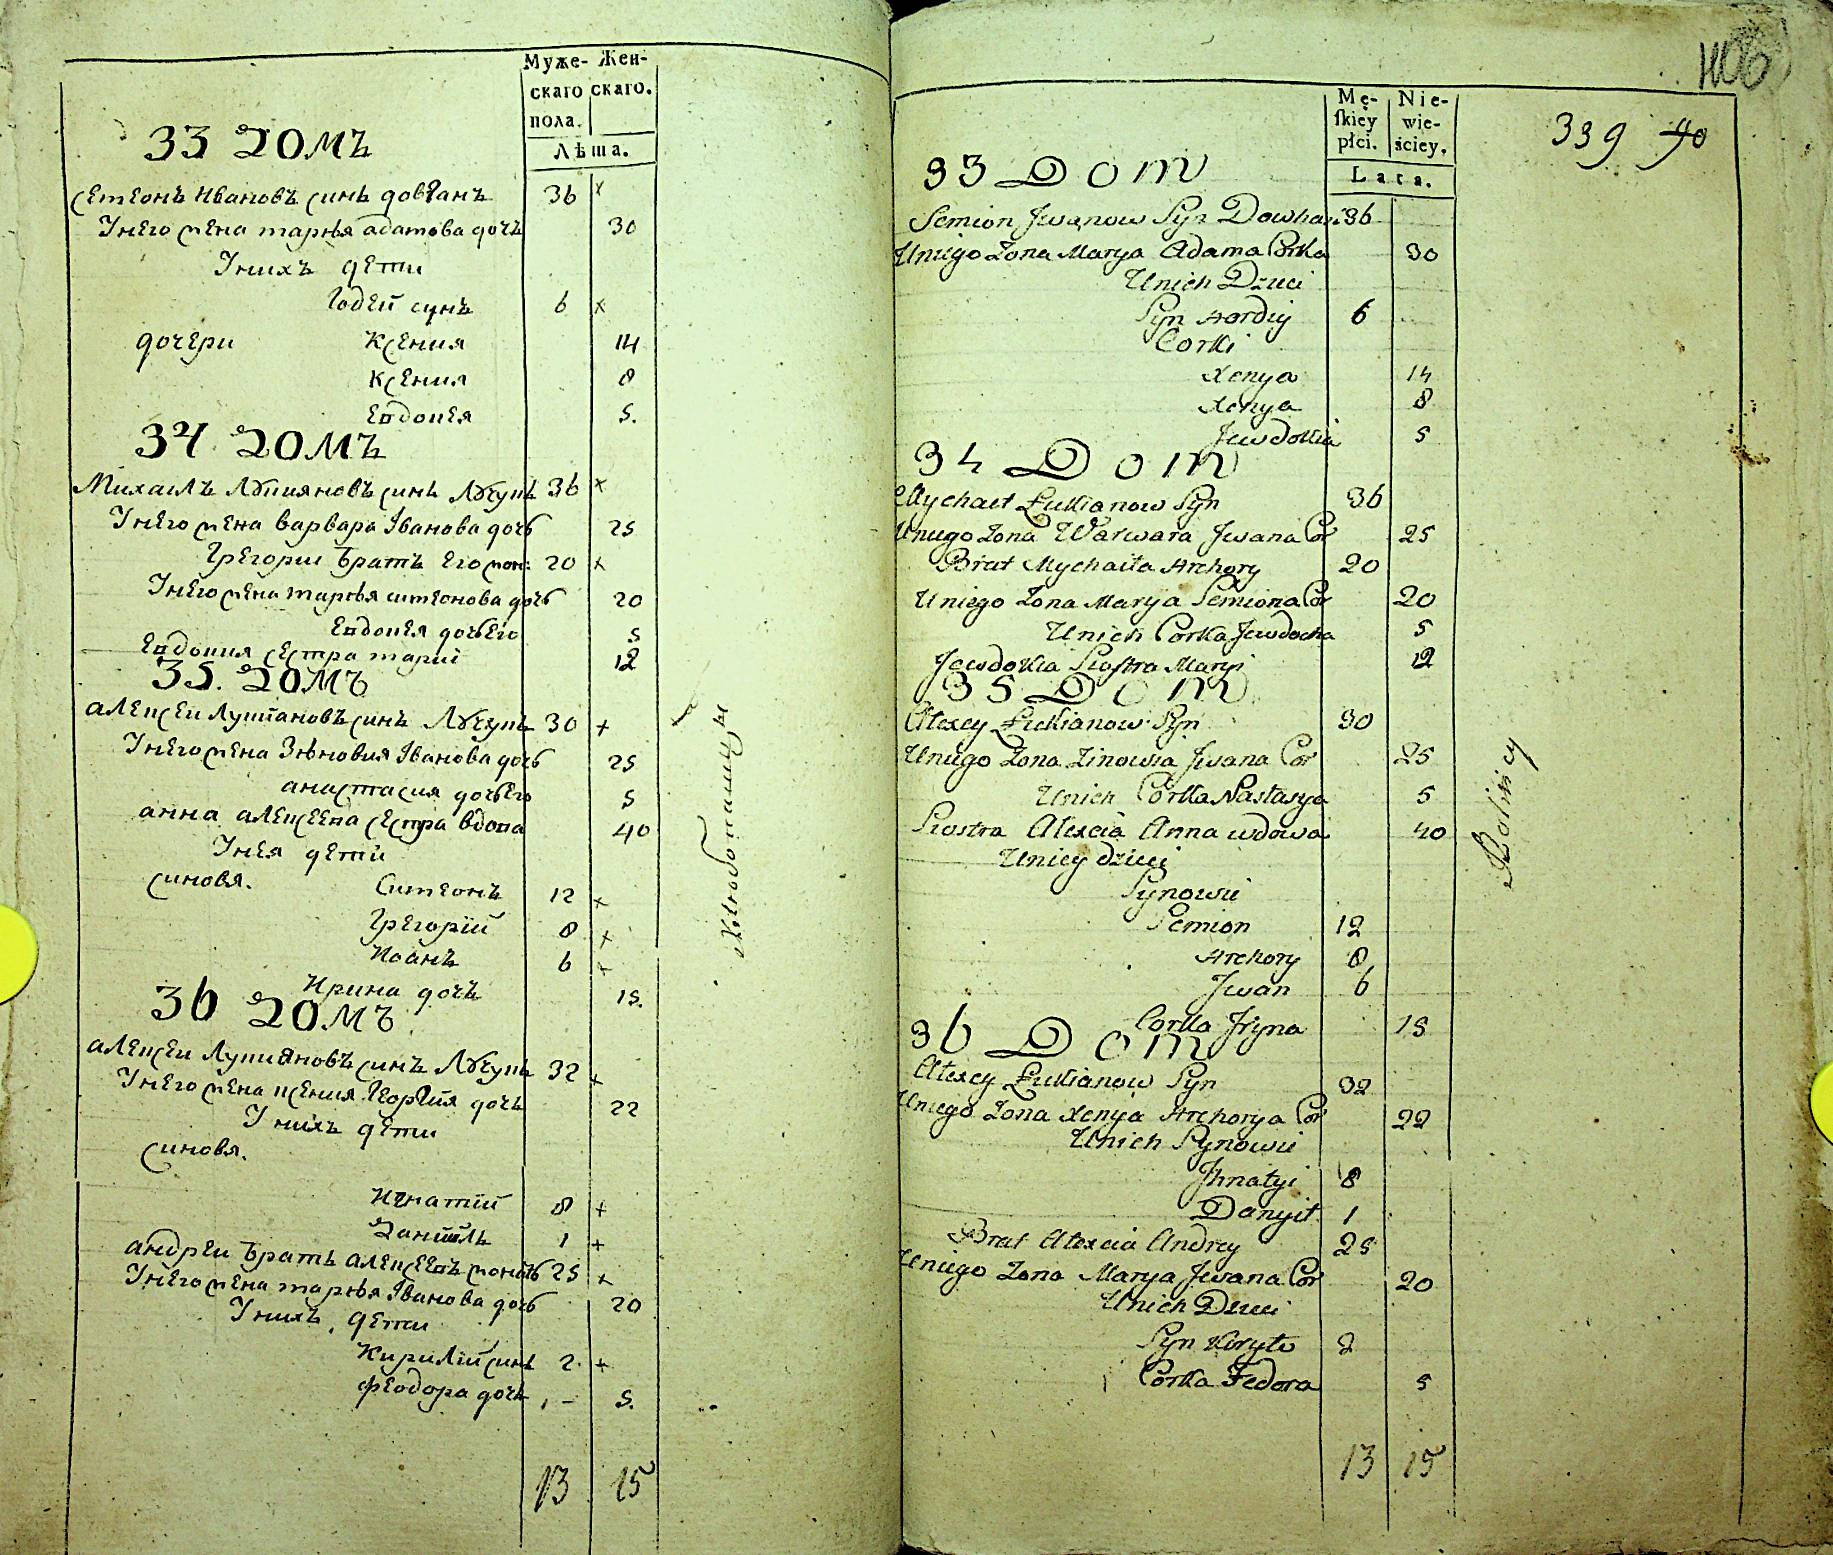 Муже- Жен-
скаго скаго.
пола.
Лѣта.
33 домъ
Семеонъ Ивановъ синъ довганъ 36 x
Унего жена марѣя адамова дочъ 30
Унихъ дети
Гордей синъ 6 x
дочери Ксения 14
Ксения 8
Евдокея 5.
34 домъ
Михаилъ Лукияновъ синъ 36 x
Унего жена варвара Іванова дочъ 25
Грегории братъ его жон: 20 x
Унего жена марѣя симеонова дочъ 20
Евдокея дочъ его 5
Евдокия сестра марии 12
35. домъ
алексеи Лукиановъ синъ 30 +
Унего жена Зѣновия Іванова дочъ 25
анастасия дочъ его 5
анна алексеева сестра вдова 40
Унея дети
синовя. Симеонъ 12 x
Грегорий 8 x
Иоанъ 6 x
Ирина дочъ 15.
36 домъ
алексеи Лукияновъ синъ 32 +
Унего жена ксения Георгия дочъ 22
Унихъ дети
синовя.
Игнатий 8 +
Данииль 1 +
андреи братъ алексеевъ 25 x
Унего жена марѣя Іванова дочъ 20
Унихъ дети
Кирилий синъ 2. +
Феодора дочъ 5.
13 15
Mę- Nie-
skiey wie-
płci. ściey.
Lata.
339 40
33 Dom
Semion Jwanow Syn Dowhan 36
Uniego Zona Marya Adama Corka 30
Unich Dzieci
Syn Hordiy 6
Corki
Xenya 14
Xenya 8
Jewdokia 5
34 Dom
Mychaeł Łukianow Syn 36
Uniego Zona Warwara Jwana Cor 25
Brat Mychaiła Hrehory 20
Uniego Zona Marya Semiona Cor 20
Unich Corka Jewdocha 5
Jewdokia Siostra Maryi 12
35 Dom
Alexey Łukianow Syn 30
Uniego Zona Zinowia Jwana Cor 25
Unich Córka Nastasya 5
Siostra Alexeia Anna wdowa 40
Uniey dzieci
Synowie
Semion 12
Hrehory 8
Jwan 6
Corka Jryna 15
36 Dom
Alexey Łukianow Syn 32
Uniego Zona Xenya Hrehorya Cor 22
Unich Synowie
Jhnatyi 8
Danyił 1
Brat Alexeia Andrey 25
Uniego Zona Marya Jwana Cor 20
Unich Dzieci
Syn Kiryło 2
Corka Fedora 5
13 15
Rolnicy